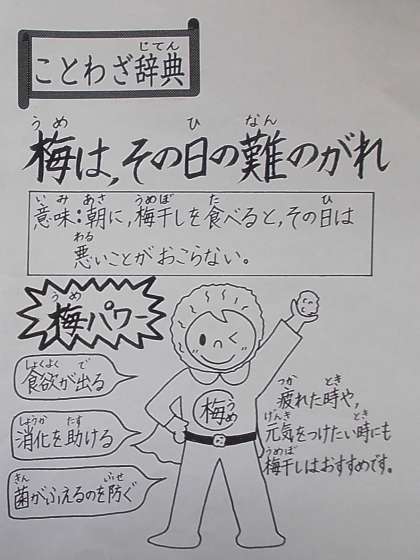 じてん
ことわざ辞典
うめ ひ なん
梅は,その日の難のがれ
いみ あさ うめぼ た ひ
意味:朝に,梅干しを食べると,その日は
わる
悪いことがおこらない。
うめ
梅パワー
しょくよく で
食欲が出る
しょうか たす
消化を助ける
きん ふせ
菌がふえるのを防ぐ
梅 うめ
つか とき
疲れた時や,
げんき とき
元気をつけたい時にも
うめぼ
梅干しはおすすめです。